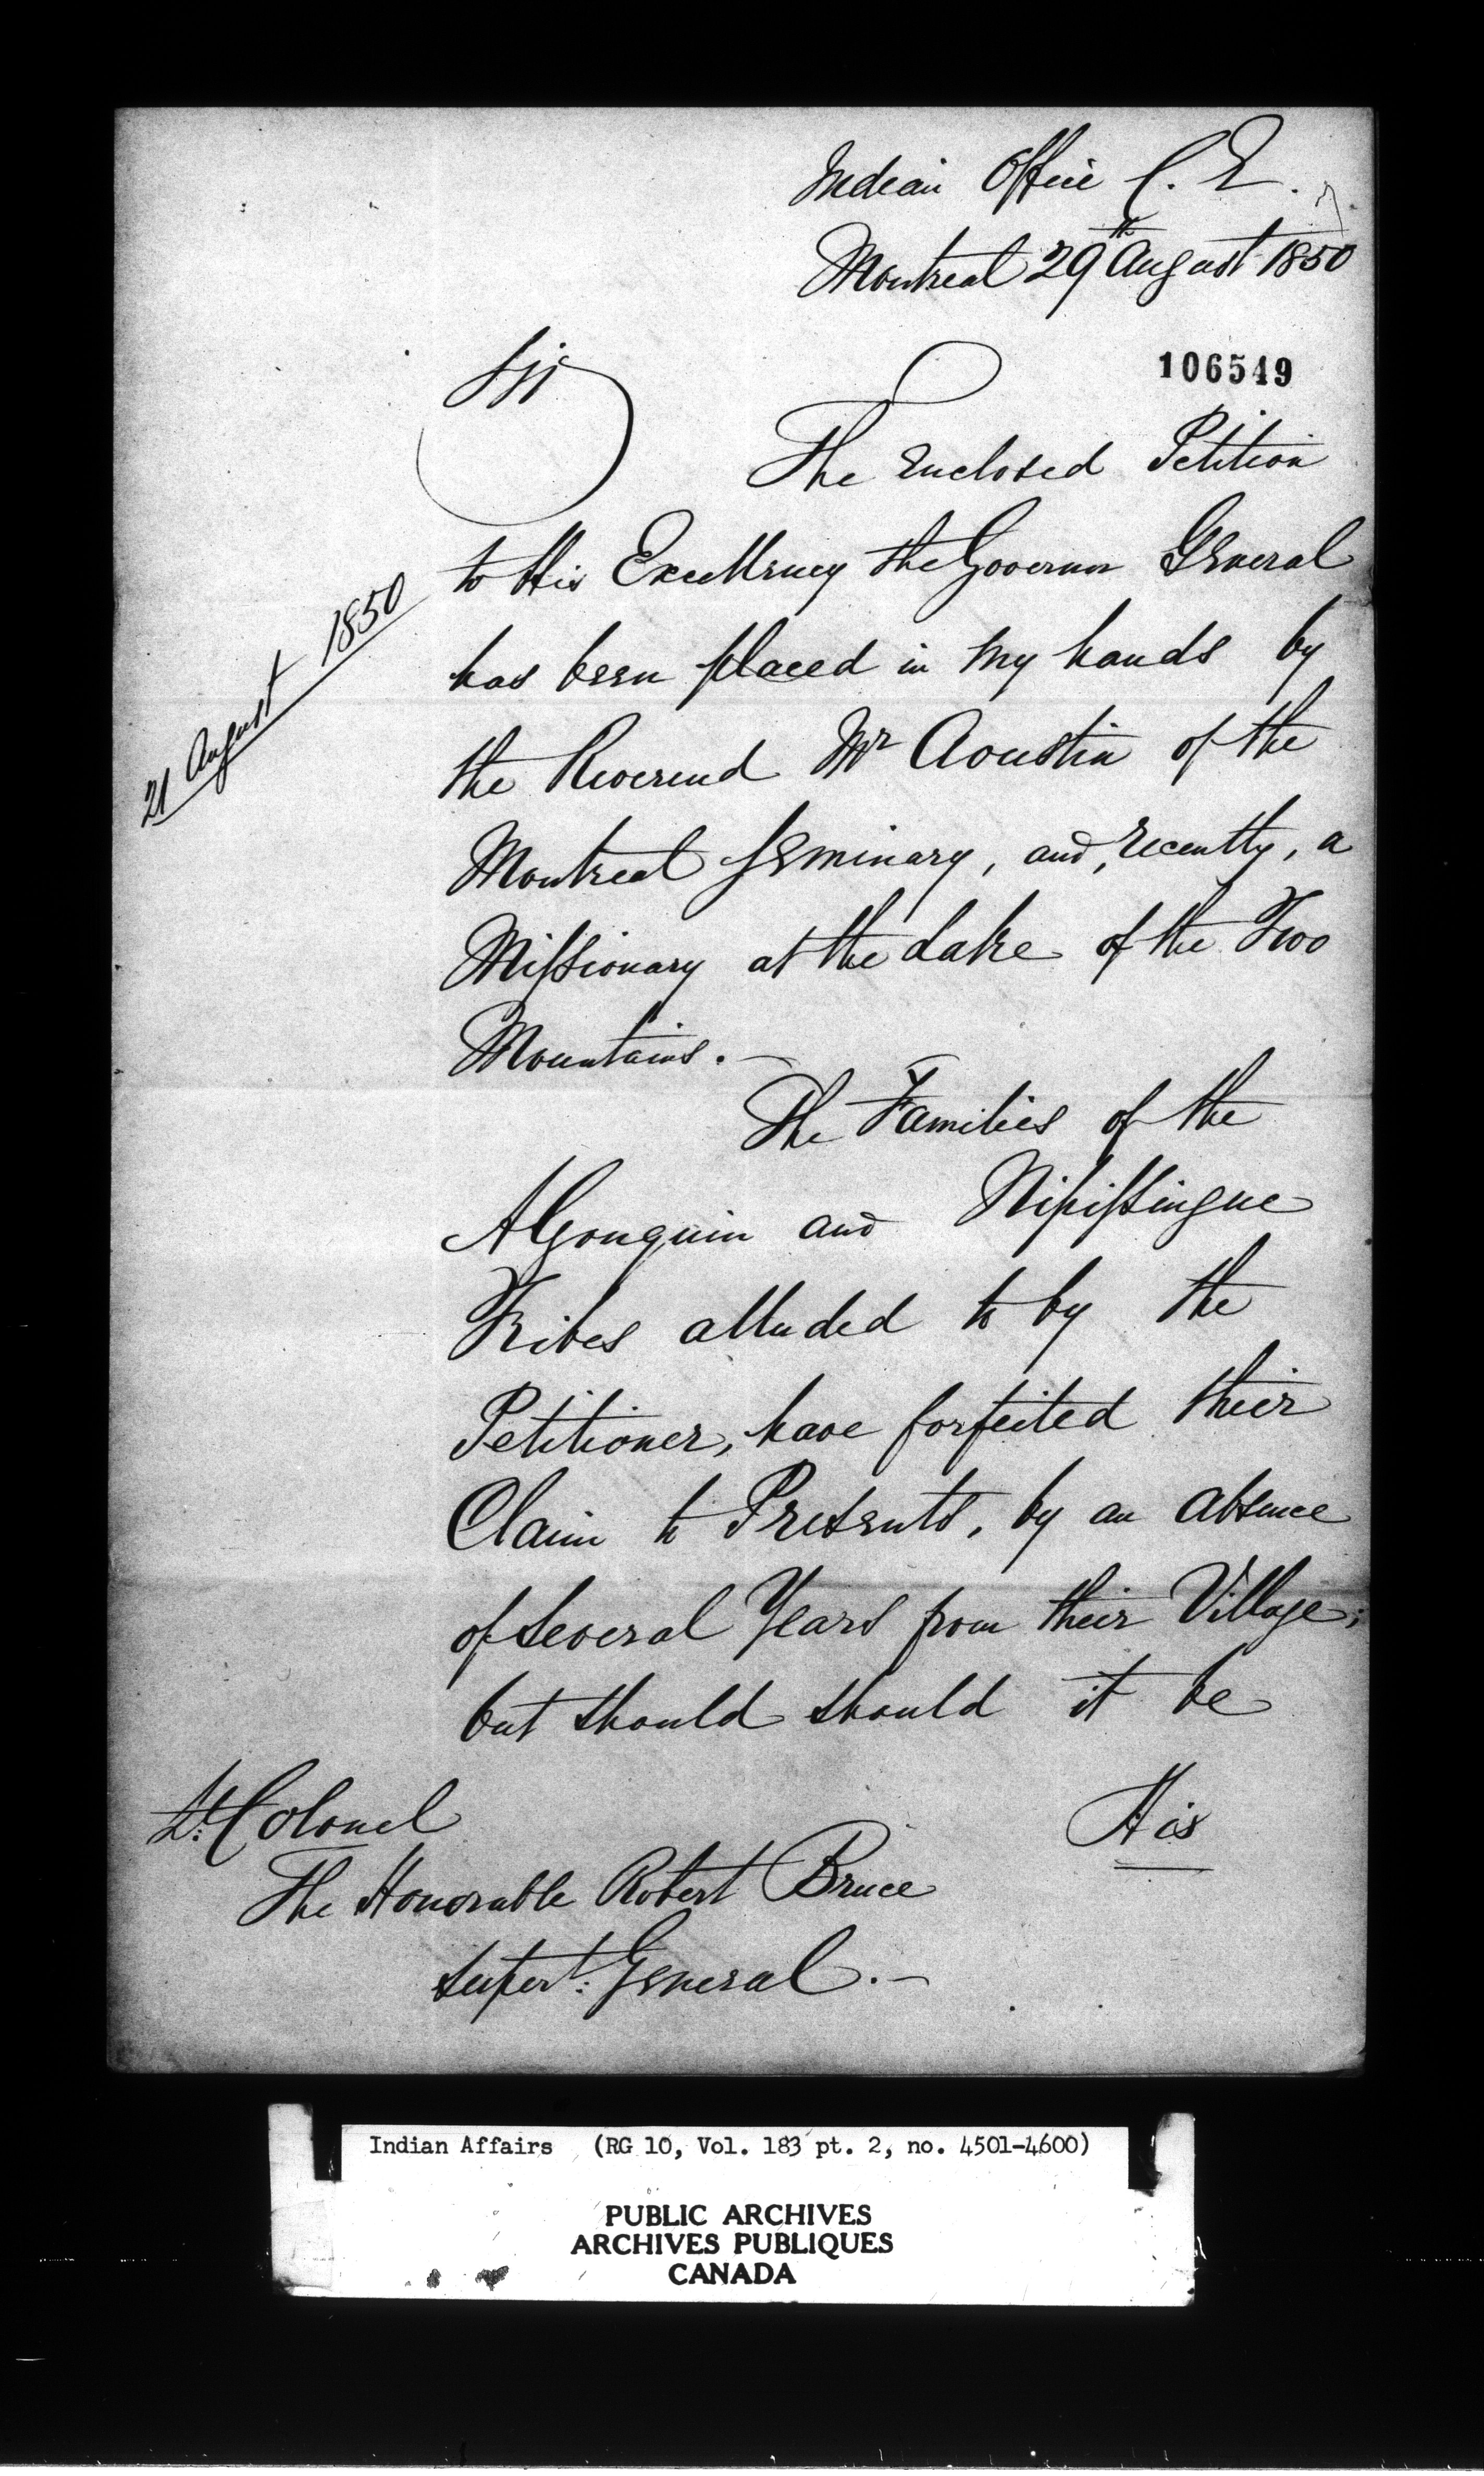 Indian Office C. E.
Montreal 29th August 1850
106549
Sir
The Enclosed Petition
to His Excellency the Governor General
21 August 1850
has been placed in my hands by
the Reverend Mr Aoustin of the
Montreal Seminary, and, recently, a
Missionary at the Lake of the Two
Mountains.
The Families of the
Algonquin and Nipissingue
Tribes alluded to by the
Petitioner, have forfeited their
Claim to Presents, by an absence
of Several Years from their Village;
but should should it be
His
Lt: Colonel
The Honorable Robert Bruce
Supert: General.
Indian Affairs (RG 10, Vol. 183 pt. 2, no. 4501-4600)
PUBLIC ARCHIVES
ARCHIVES PUBLIQUES
CANADA